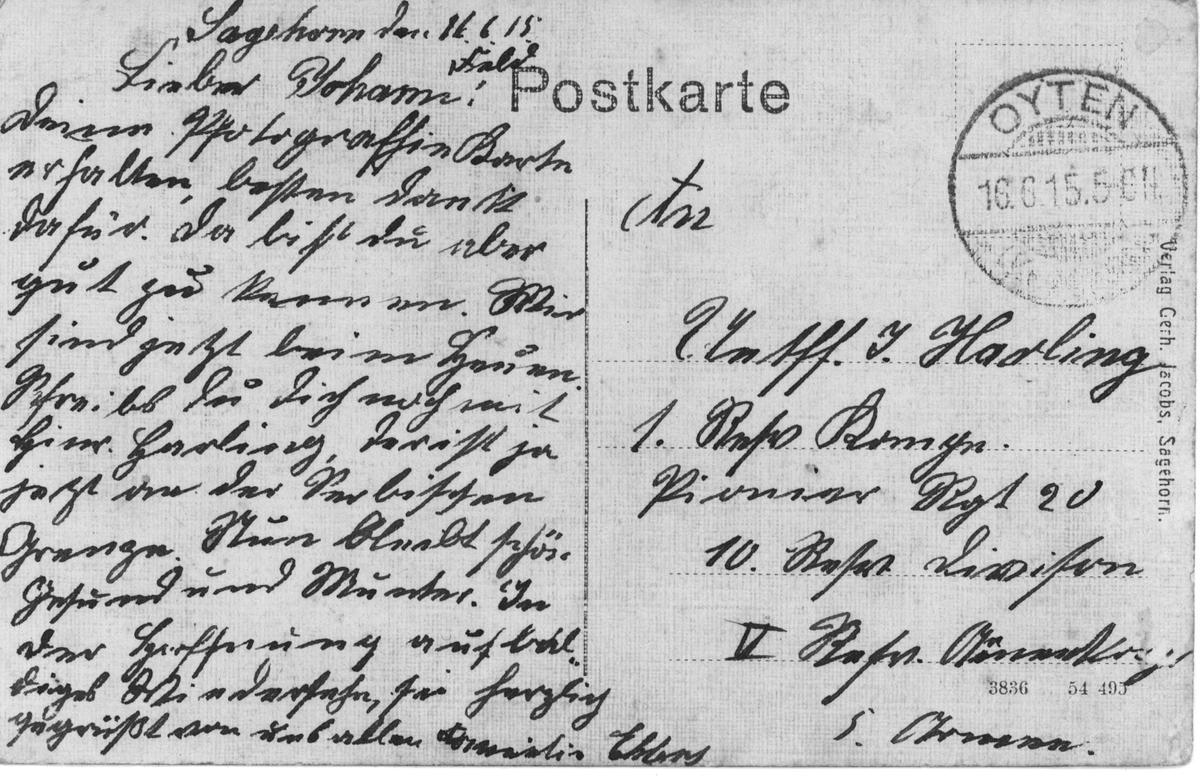 Sagehorn den 16.6.15.
Lieber Johann!
Feld
Postkarte
Deine Photografhie Karte
erhalten, besten Dank
dafür. Da bist du aber
gut zu kennen. Wir
sind jetzt beim Heuen.
Schreibs du dich noch mit
Hinr. Harling, der ist ja
jetzt an der Serbischen
Grenze. Nun bleibt schön
Gesund und Munter. In
der Hoffnung auf bal-
diges Wiedersehn, sei herzlich
gegrüßt von uns allen Familie Ehlers
OYTEN
16.6.15.5-6N.
An
Untff. J. Harling
1. Resv Kompn.
Pionier Rgt 20
10. Resv Divison
V Resv. Armeekorps
5. Armee.
3836 54 495
Verlag Gerh. Jacobs, Sagehorn.